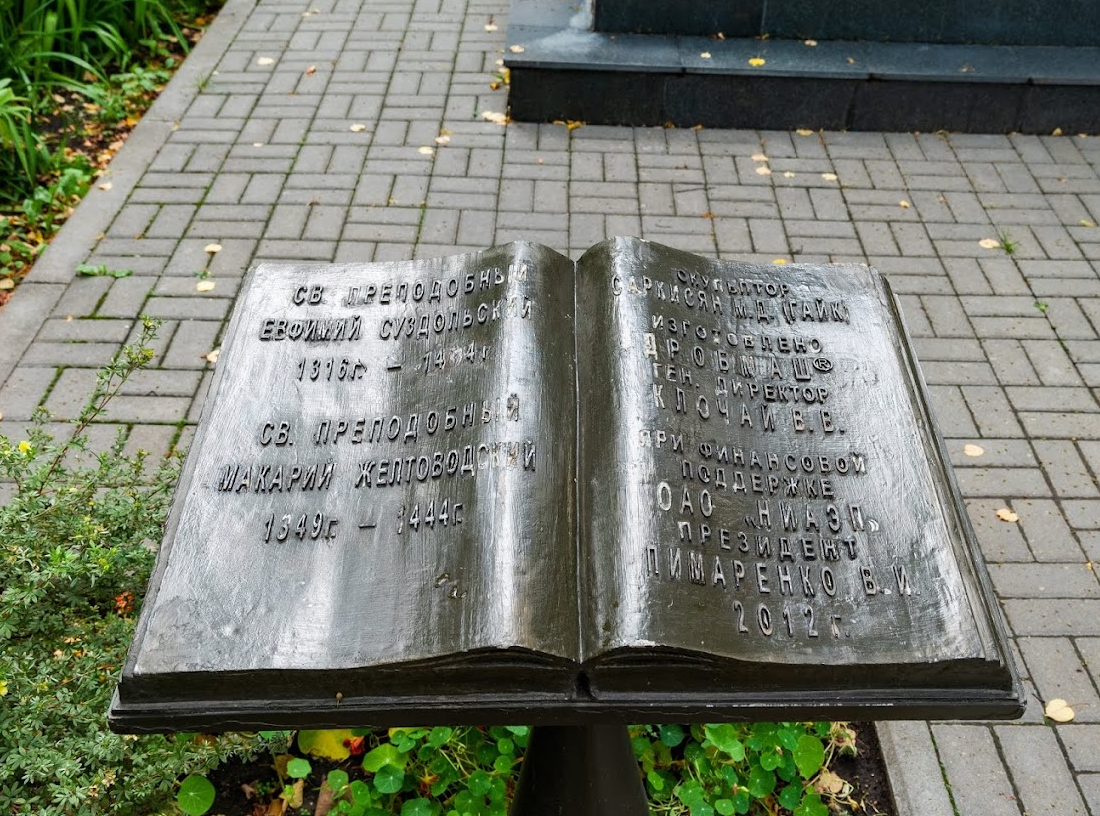 СВ. ПРЕПОДОБНЫЙ
ЕВФИМИЙ СУЗДОЛЬСКИЙ
1316г. – 1404г.
СВ. ПРЕПОДОБНЫЙ
МАКАРИЙ ЖЕЛТОВОДСКИЙ
1349г. – 1444г.
СКУЛЬПТОР
САРКИСЯН М.Д. (ГАЙК)
ИЗГОТОВЛЕНО
ДРОБМАШ®
ГЕН. ДИРЕКТОР
КЛОЧАЙ В.В.
ПРИ ФИНАНСОВОЙ
ПОДДЕРЖКЕ
ОАО «НИАЭП»
ПРЕЗИДЕНТ
ЛИМАРЕНКО В.И.
2012г.